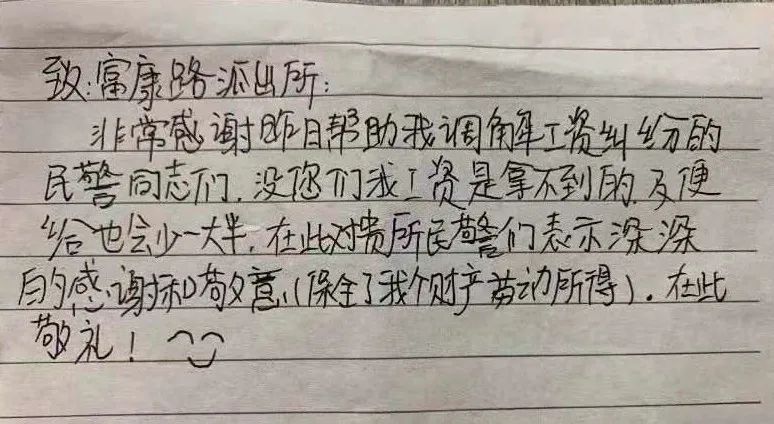 致:富康路派出所:
非常感谢昨日帮助我调解工资纠纷的
民警同志们.没您们我工资是拿不到的.及便
给也会少一大半.在此对贵所民警们表示深深
的感谢和敬意!(保全了我个财产劳动所得).在此
敬礼!